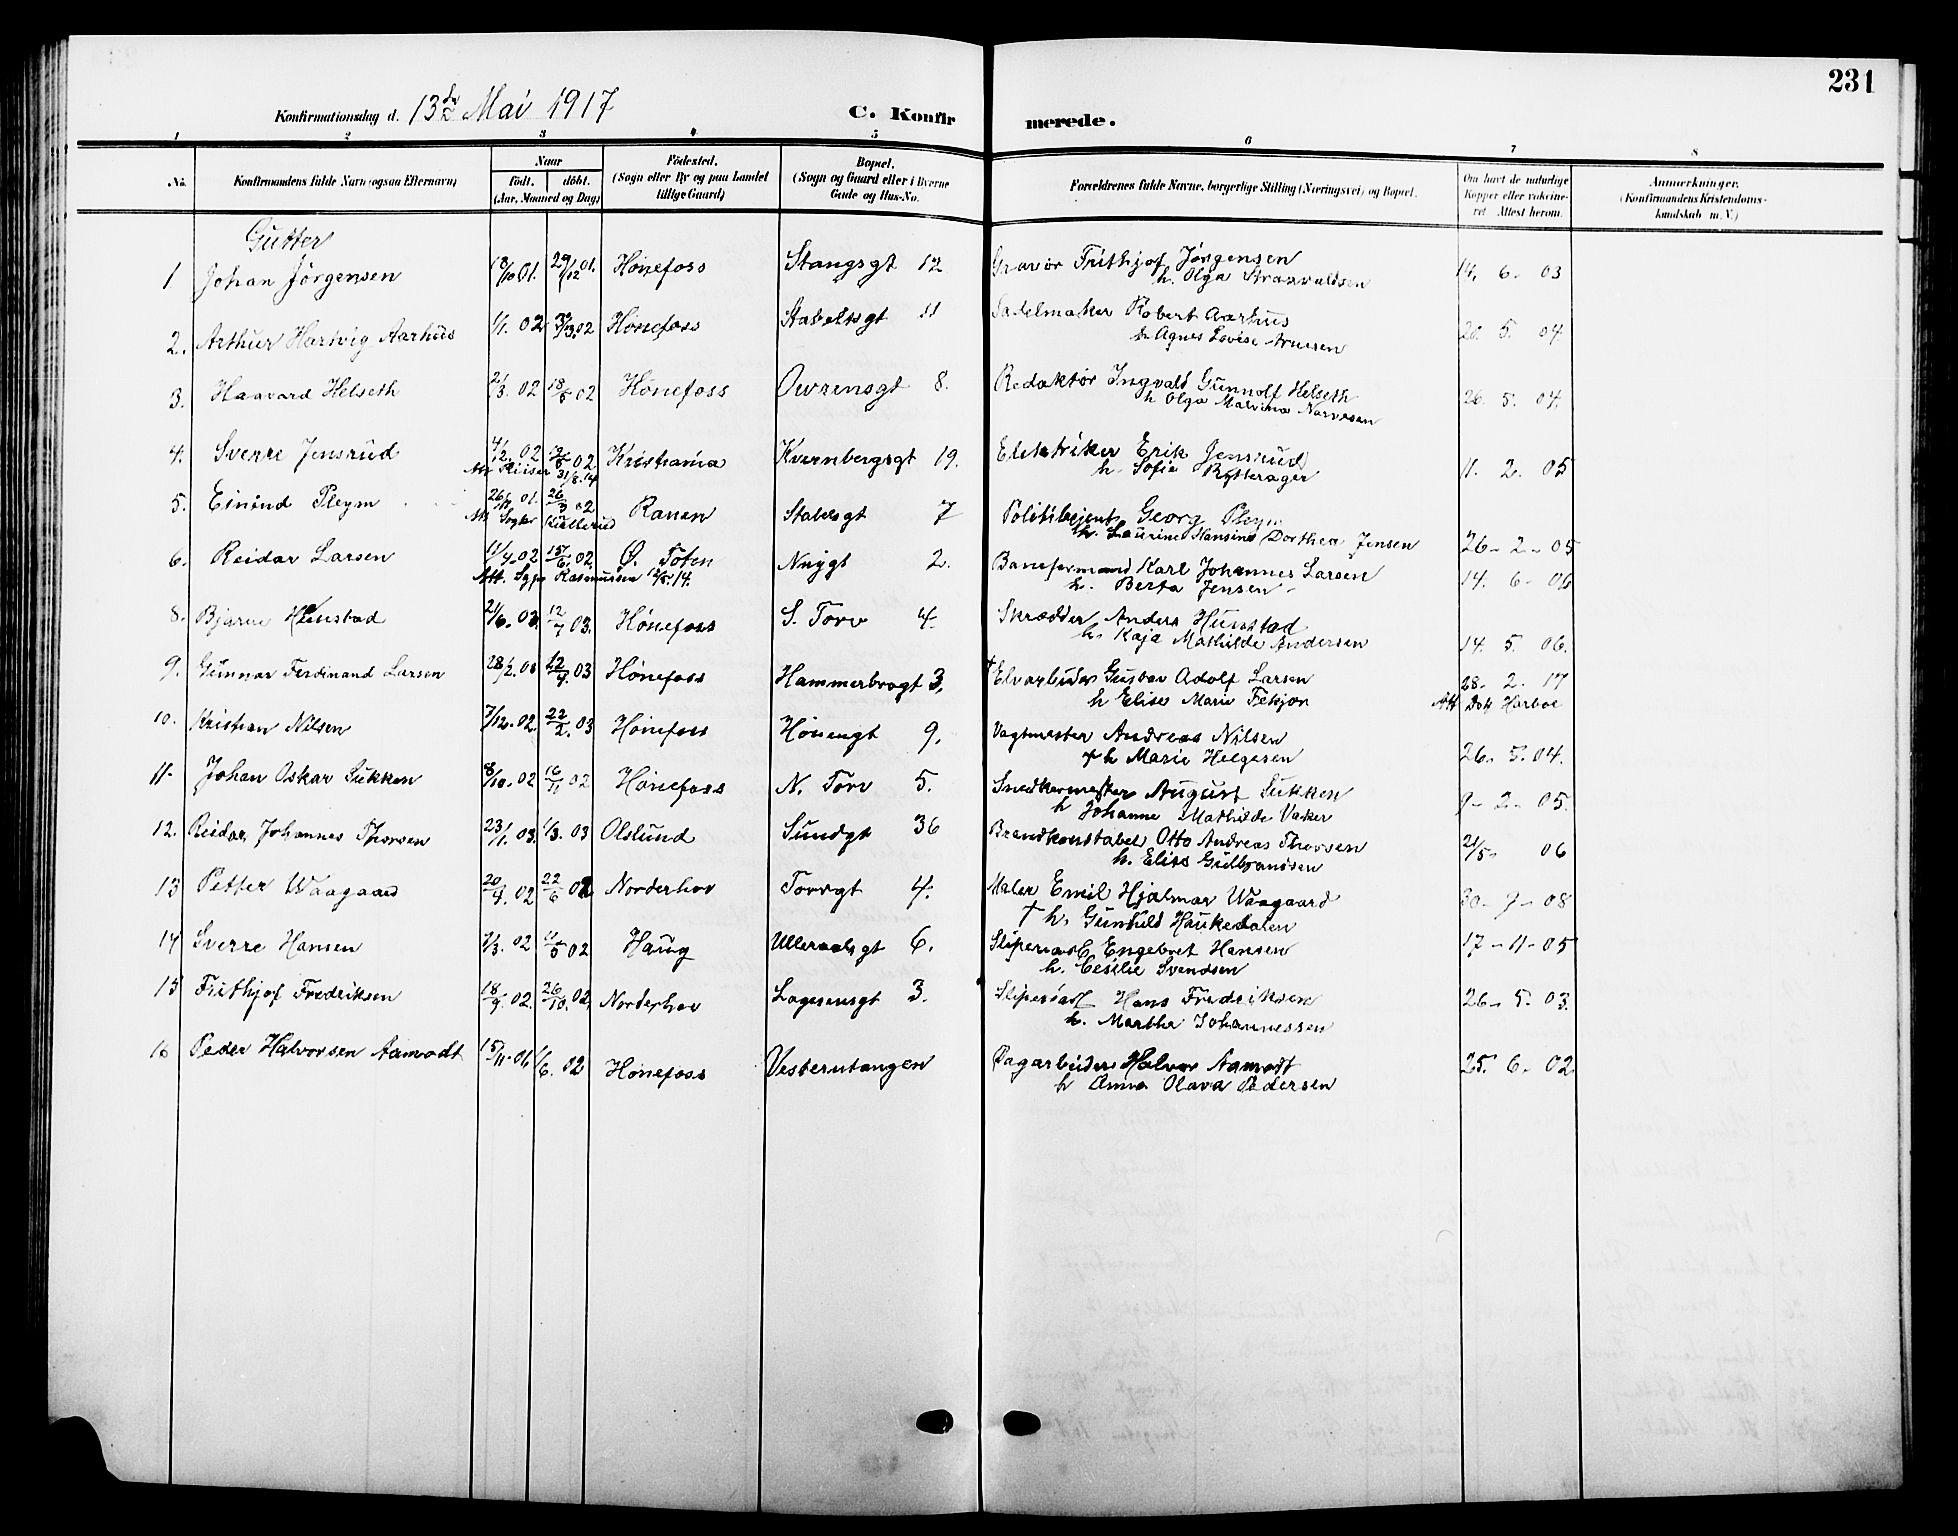 231
Konfirmationsdag d. 13de Mai 1917 C. Konfirmerede.
1 2 3 4 5 6 7 8
No. Konfirmandens fulde Navn (ogsaa Efternavn) Naar født. døbt. (Aar, Maaned og Dag) Fødested. (Sogn eller By og paa Landet tillige Gaard) Bopæl. (Sogn og Gaard eller i Byerne Gade og Hus-No. Forældrenes fulde Navne, borgerlige Stilling (Næringsvei) og Bopæl. Om havt de naturlige Kopper eller vakcineret Attest herom. Anmærkninger. (Konfirmandens Kristendomskundskab m. V.)
Gutter
1 Johan Jörgensen 01. 29/12 01. Hönefoss Stangsgt 12 Gravör Frithjof Jörgensen 14. 6. 03
h. Olga
2. Arthur Hartvig Aarhus 1/1. 02 02 Hönefoss Stabelsgt 11 Sadelmaker Robert Aarhus 20. 5. 04.
h. Agnes Lovise
3. Haavard Helseth 2/3. 02 18/5 02 Hönefoss Owrensgt 8. Redaktör Ingvald Gunnolf Helseth 26. 5. 04.
h. Olga Marima Narvesen
4. Sverre Jensrud 4/12. 02 02. Kristiania Kvernbergsgt 19. Elektriker Erik Jensrud 11. 2. 05
Att Riiser 31/8. 14 h. Sofie Rytterager
5. Eivind Pleym 01. 26/3 02 Ranen Stabelsgt 7 Politibetjent Georg Pleym
Att Sogpr. h. Laurine Hansine Dorthea Jensen 26- 2- 05
6. Reidar Larsen 11/4. 02 15/6. 02. Ø. Toten Nygt 2. Baneformand Karl Johannes Larsen 14. 6- 06
Att. Sgpr Rasmussen 12/5. 14. h. Berta Jensen
8. Bjarne Hunstad 21/6. 03. 12/7 03. Hönefoss S. Torv 4. Skrædder Anders Hunstad
h. Kaja Mathilde Andersen 14. 5. 06.
9. Gunnar Ferdinand Larsen 28/2. 03 12/4. 03 Hönefoss Hammerbrogt 3. † Elvarbeider Gustav Adolf Larsen 28- 2. 17
h Elise Marie Fekjær Att Dok Harboe
10. Kristian Nilsen 7/12. 02. 22/2. 03 Hönefoss Hönengt 9. Vagtmester Andreas Nilsen
† h Marie Helgesen 26- 5. 04.
11. Johan Oskar Sukken 8/10. 02 16/11 02 Hönefoss N. Torv 5. Snedkermester August Sukken
h Johanne Mathilde Vaker 9- 2- 05.
12. Reidar Johannes Thorsen 23/1. 03. 1/3. 03 Olslund Sundgt 36 Brandkonstabel Otto Andreas Thorsen 21/5- 06
h. Elise Gulbrandsen
13 Petter Waagaard 20/4. 02 22/6 02 Norderhov Torvgt 4. Maler Emil Hjalmar Waagaard 30- 9- 08
† h. Gunhild Haukedalen
14 Sverre Hansen 7/3. 02 11/5 02 Haug Ulleraalsgt 6. Sliperiarb. Engebret Hansen 17- 11- 05
h. Cesilie Svendsen
15 Frithjof Fredriksen 18/9. 02. 26/10. 02. Norderhov Lagesensgt 3. Sliperiarb Hans Fredriksen 26- 5. 03.
h. Marthe Johannessen
16 Peder Halvorsen Aamodt 15/11. 01 1/6. 02 Hönefoss Vesterntangen Dagarbeider Halvor Aamodt 25. 6- 02
h Anna Olava Pedersen